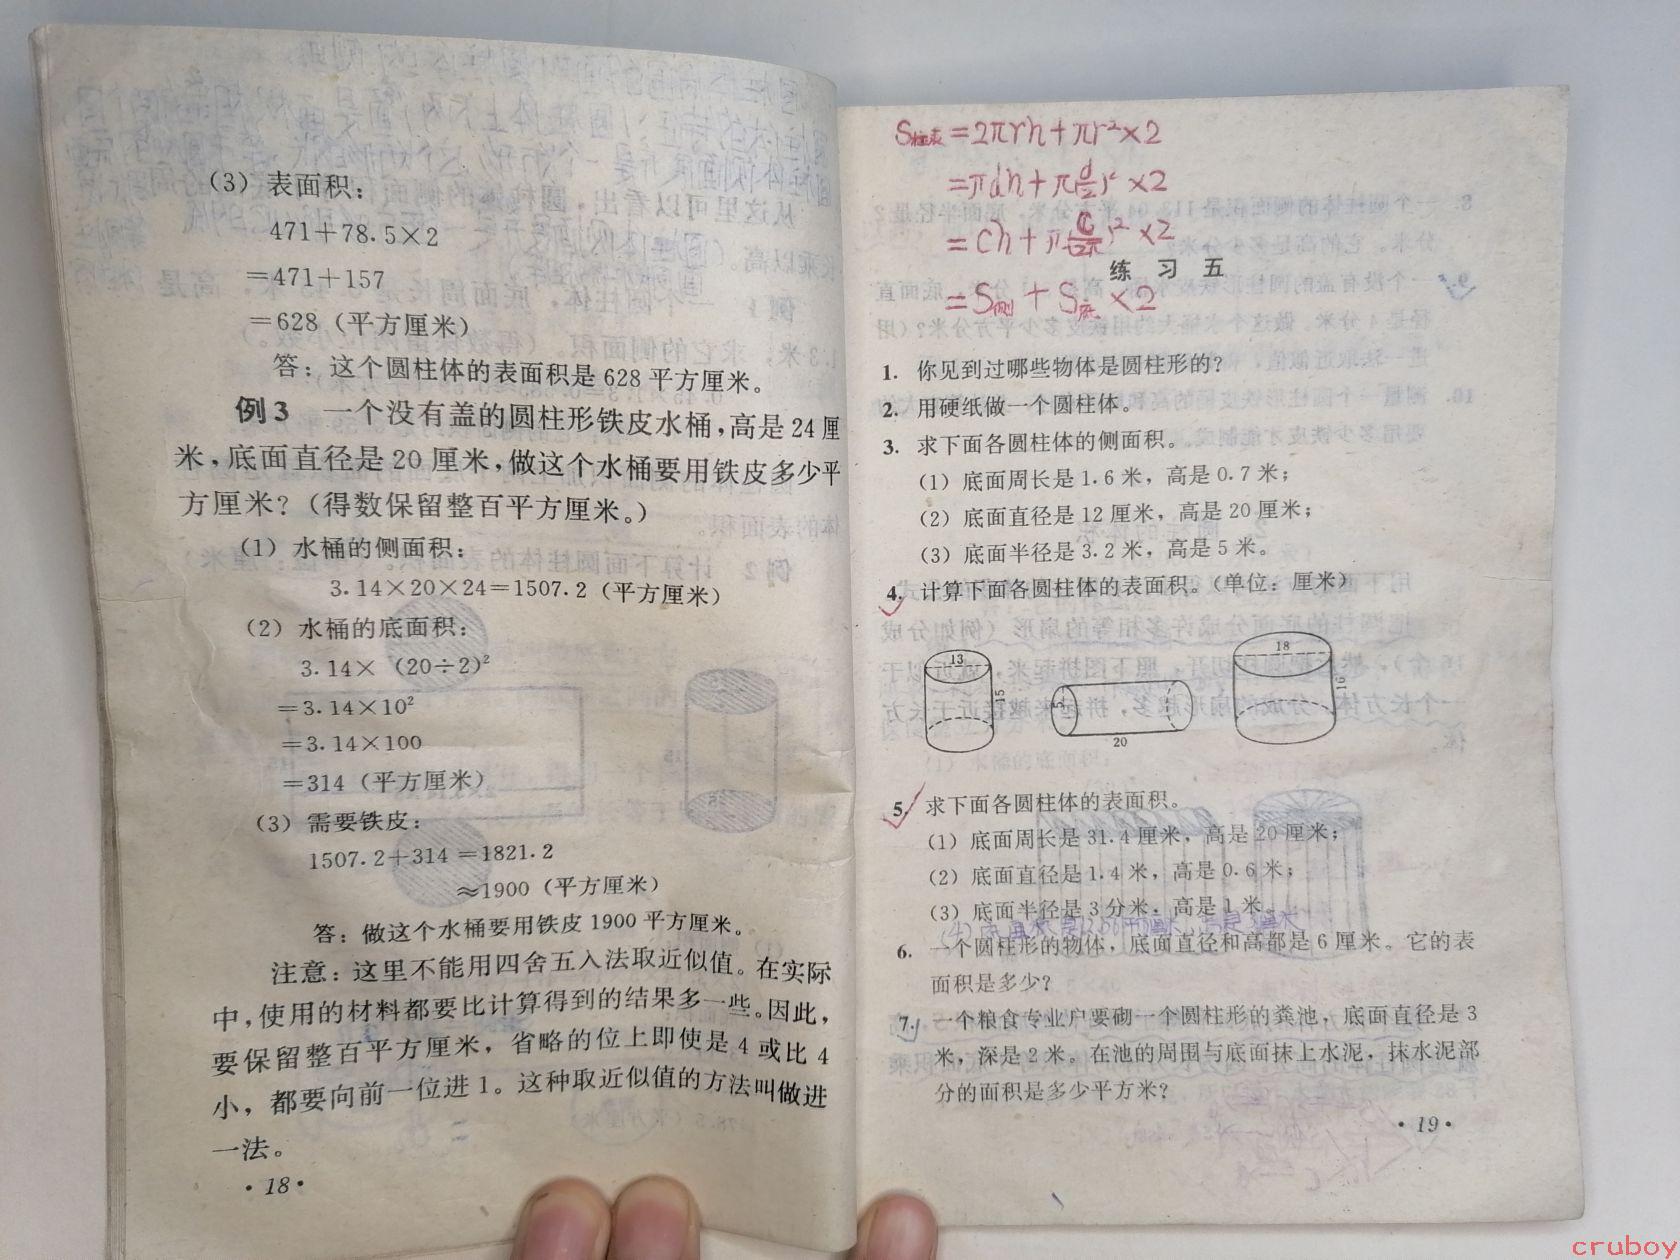 (3) 表面积:
471+78.5×2
=471+157
=628 (平方厘米)
答: 这个圆柱体的表面积是628平方厘米。
例3 一个没有盖的圆柱形铁皮水桶,高是24厘
米,底面直径是20厘米,做这个水桶要用铁皮多少平
方厘米? (得数保留整百平方厘米。)
(1) 水桶的侧面积:
3.14×20×24=1507.2 (平方厘米)
(2) 水桶的底面积:
3.14× (20÷2)²
=3.14×10²
=3.14×100
=314 (平方厘米)
(3) 需要铁皮:
1507.2+314=1821.2
≈1900 (平方厘米)
答: 做这个水桶要用铁皮1900平方厘米。
注意: 这里不能用四舍五入法取近似值。在实际
中,使用的材料都要比计算得到的结果多一些。因此,
要保留整百平方厘米, 省略的位上即使是4或比4
小, 都要向前一位进1。这种取近似值的方法叫做进
一法。
·18·
S柱表=2πrh+πr²×2
=πdh+π(d/2)²×2
=Ch+π(C/2π)²×2
练 习 五
=S侧+S底×2
1. 你见到过哪些物体是圆柱形的?
2. 用硬纸做一个圆柱体。
3. 求下面各圆柱体的侧面积。
(1) 底面周长是1.6米, 高是0.7米;
(2) 底面直径是12厘米, 高是20厘米;
(3) 底面半径是3.2米, 高是5米。
4. 计算下面各圆柱体的表面积。(单位: 厘米)
13
15
5
20
18
16
5. 求下面各圆柱体的表面积。
(1) 底面周长是31.4厘米, 高是20厘米;
(2) 底面直径是1.4米, 高是0.6米;
(3) 底面半径是3分米, 高是1米。
6. 一个圆柱形的物体, 底面直径和高都是6厘米。它的表
面积是多少?
7. 一个粮食专业户要砌一个圆柱形的粪池, 底面直径是3
米, 深是2米。在池的周围与底面抹上水泥, 抹水泥部
分的面积是多少平方米?
·19·
cruboy